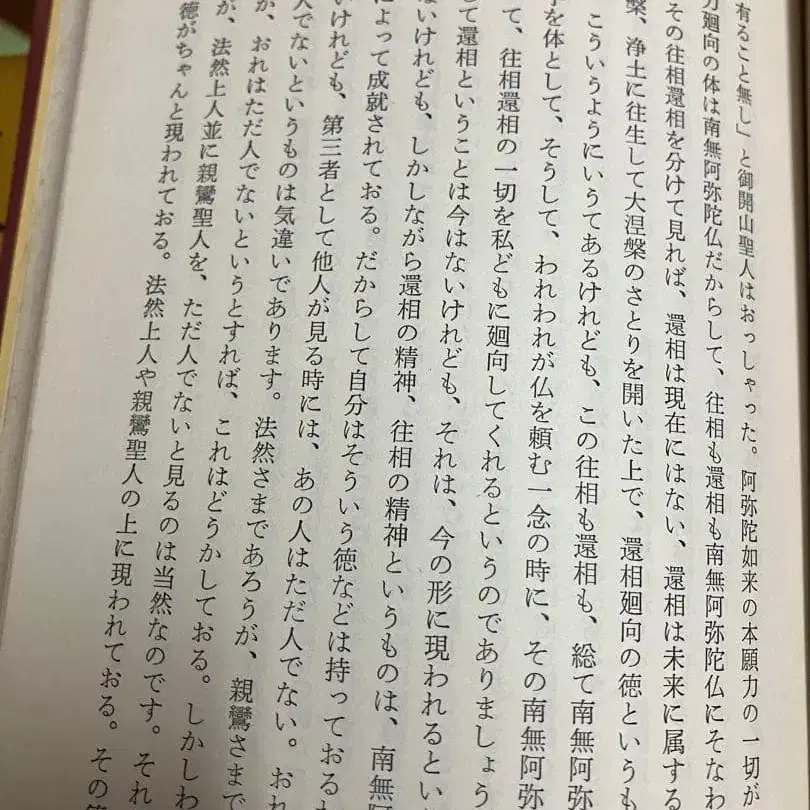 有ること無し」と御開山聖人はおっしゃった。阿弥陀如来の本願力の一切が
力廻向の体は南無阿弥陀仏だからして、往相も還相も南無阿弥陀仏にそなわ
その往相還相を分けて見れば、還相は現在にはない、還相は未来に属する
槃、浄土に往生して大涅槃のさとりを開いた上で、還相廻向の徳というも
こういうようにいうてあるけれども、この往相も還相も、総て南無阿弥
字を体として、そうして、われわれが仏を頼む一念の時に、その南無阿弥
て、往相還相の一切を私どもに廻向してくれるというのでありましょう
して還相ということは今はないけれども、それは、今の形に現われるとい
ないけれども、しかしながら還相の精神、往相の精神というものは、南無
によって成就されておる。だからして自分はそういう徳などは持っておる
いけれども、第三者として他人が見る時には、あの人はただ人でない。おれ
人でないというものは気違いであります。法然さまであろうが、親鸞さまで
が、おれはただ人でないというとすれば、これはどうかしておる。しかしわ
が、法然上人並に親鸞聖人を、ただ人でないと見るのは当然なのです。それ
徳がちゃんと現われておる。法然上人や親鸞聖人の上に現われておる。その